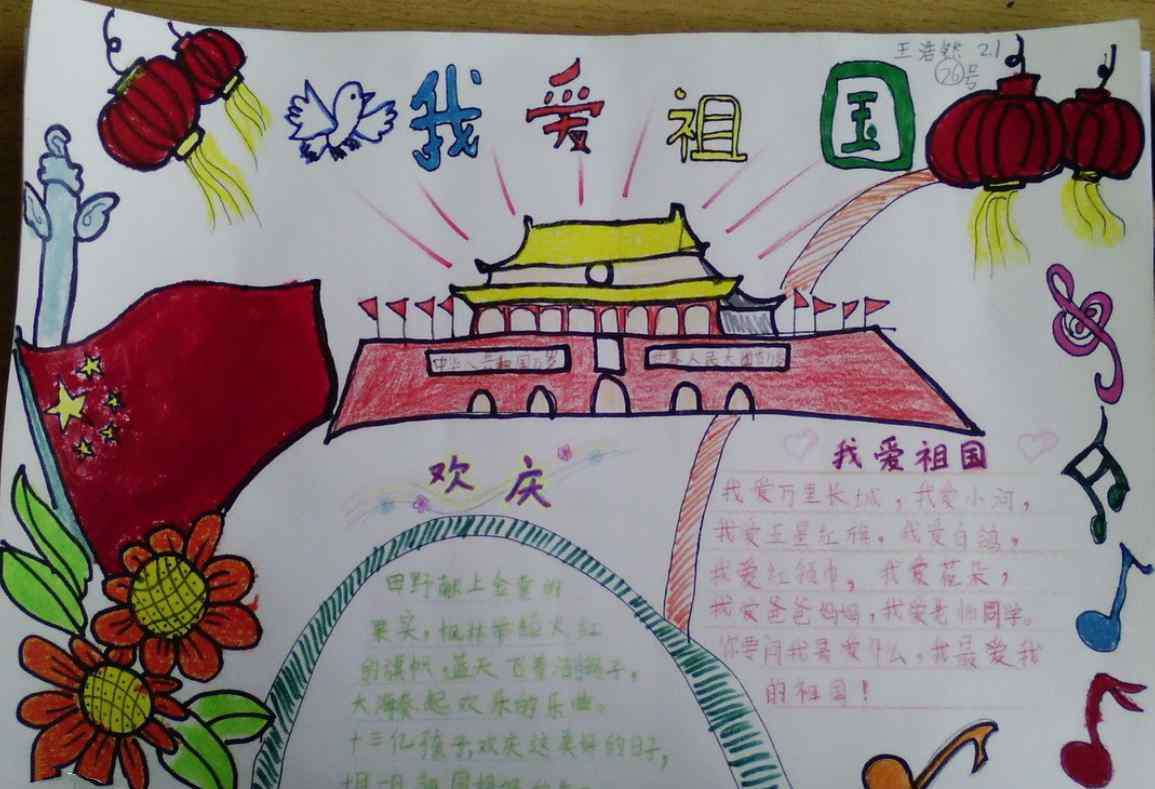 王浩然 2.1
26号
我爱祖国
中华人民共和国万岁
世界人民大团结万岁
欢庆
田野献上金黄的
果实,枫林举起火红
的旗帜,蓝天飞着洁白鸽子,
大海奏起欢乐的乐曲。
十三亿孩子,欢庆这美好的日子,
我爱祖国
我爱万里长城,我爱小河,
我爱五星红旗。我爱白鸽,
我爱红领巾,我爱花朵,
我爱爸爸妈妈,我爱老师同学。
你要问我最爱什么,我最爱我
的祖国!